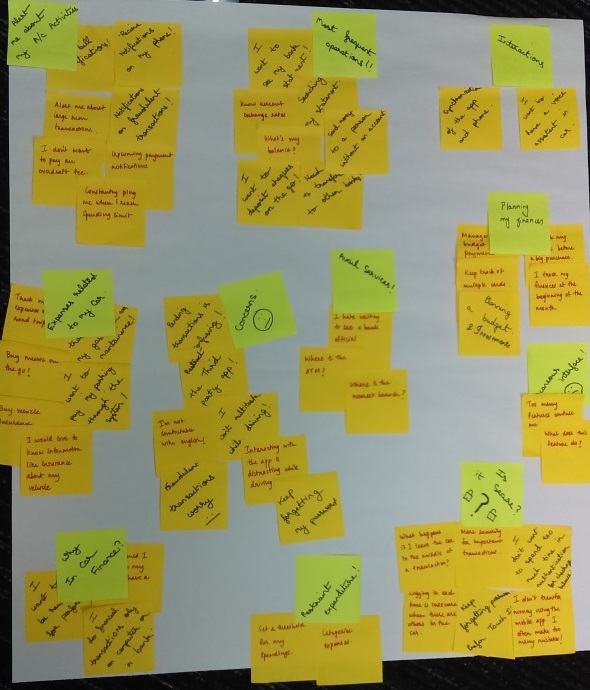 Alert
me about
my A/c Activities
bill
notifications!
Receive
Notifications
on my phone!
Alert me about
large sum
transactions.
Notifications
on fraudulent
transactions!
I don't want
to pay an
overdraft fee.
Upcoming payment
notifications
Constantly ping
me when I reach
spending limit
Most frequent
operations!!
I
want to
see my bank
statement.
Searching
my
Know account
exchange rates
Send money
to a person
without an account
What's my
balance?
I
want to
deposit cheques
on the go!
Need
to transfer
to other bank!
Interactions
Synchronisation
of the app
and phone.
I
want to
have a voice
assistant in
car.
Planning
my finances
Manage
budget
payment
before
a big purchase
Keep track of
multiple cards
I track my
finances at the
beginning of the
month.
Planning
a budget
& Investments
Expenses related
to my car.
Track
expenses
maintenance!
Buy
the go!
I
want to
pay my parking
through the
system!
Buy vehicle
insurance
I would love to
know information
like Insurance
about my
vehicle
Concerns
Banking
transactions is
the Third
party app!
I'm not
comfortable
with english!
I
can't multitask
while driving!
Fraudulent
transactions
worry
Interacting with
the app is
distracting while
driving
Keep
forgetting
my password
Avail Services!
I hate waiting
to see a bank
official!
Where is the
ATM?
Where is the
nearest branch?
interface!
Too many
features confuse
me
What does this
feature do?
Is
it Secure?
?
What happens
if I leave the car
in the middle of
a transaction?
More security
for important
transactions
I
don't want
to spend too
much time on
authentication
Logging in each
time is insecure
when there are
others in the
car
Keep
forgetting password
Prefer Touch
I don't transfer
money using the
mobile app I
often make too
many mistakes!
Why
In Car
Finance?
I
want to
I
do financial
transactions only
on computer or
in bank!
Relevant
expenditure!
Set a threshold
for my
spendings
Categorise
expenses.